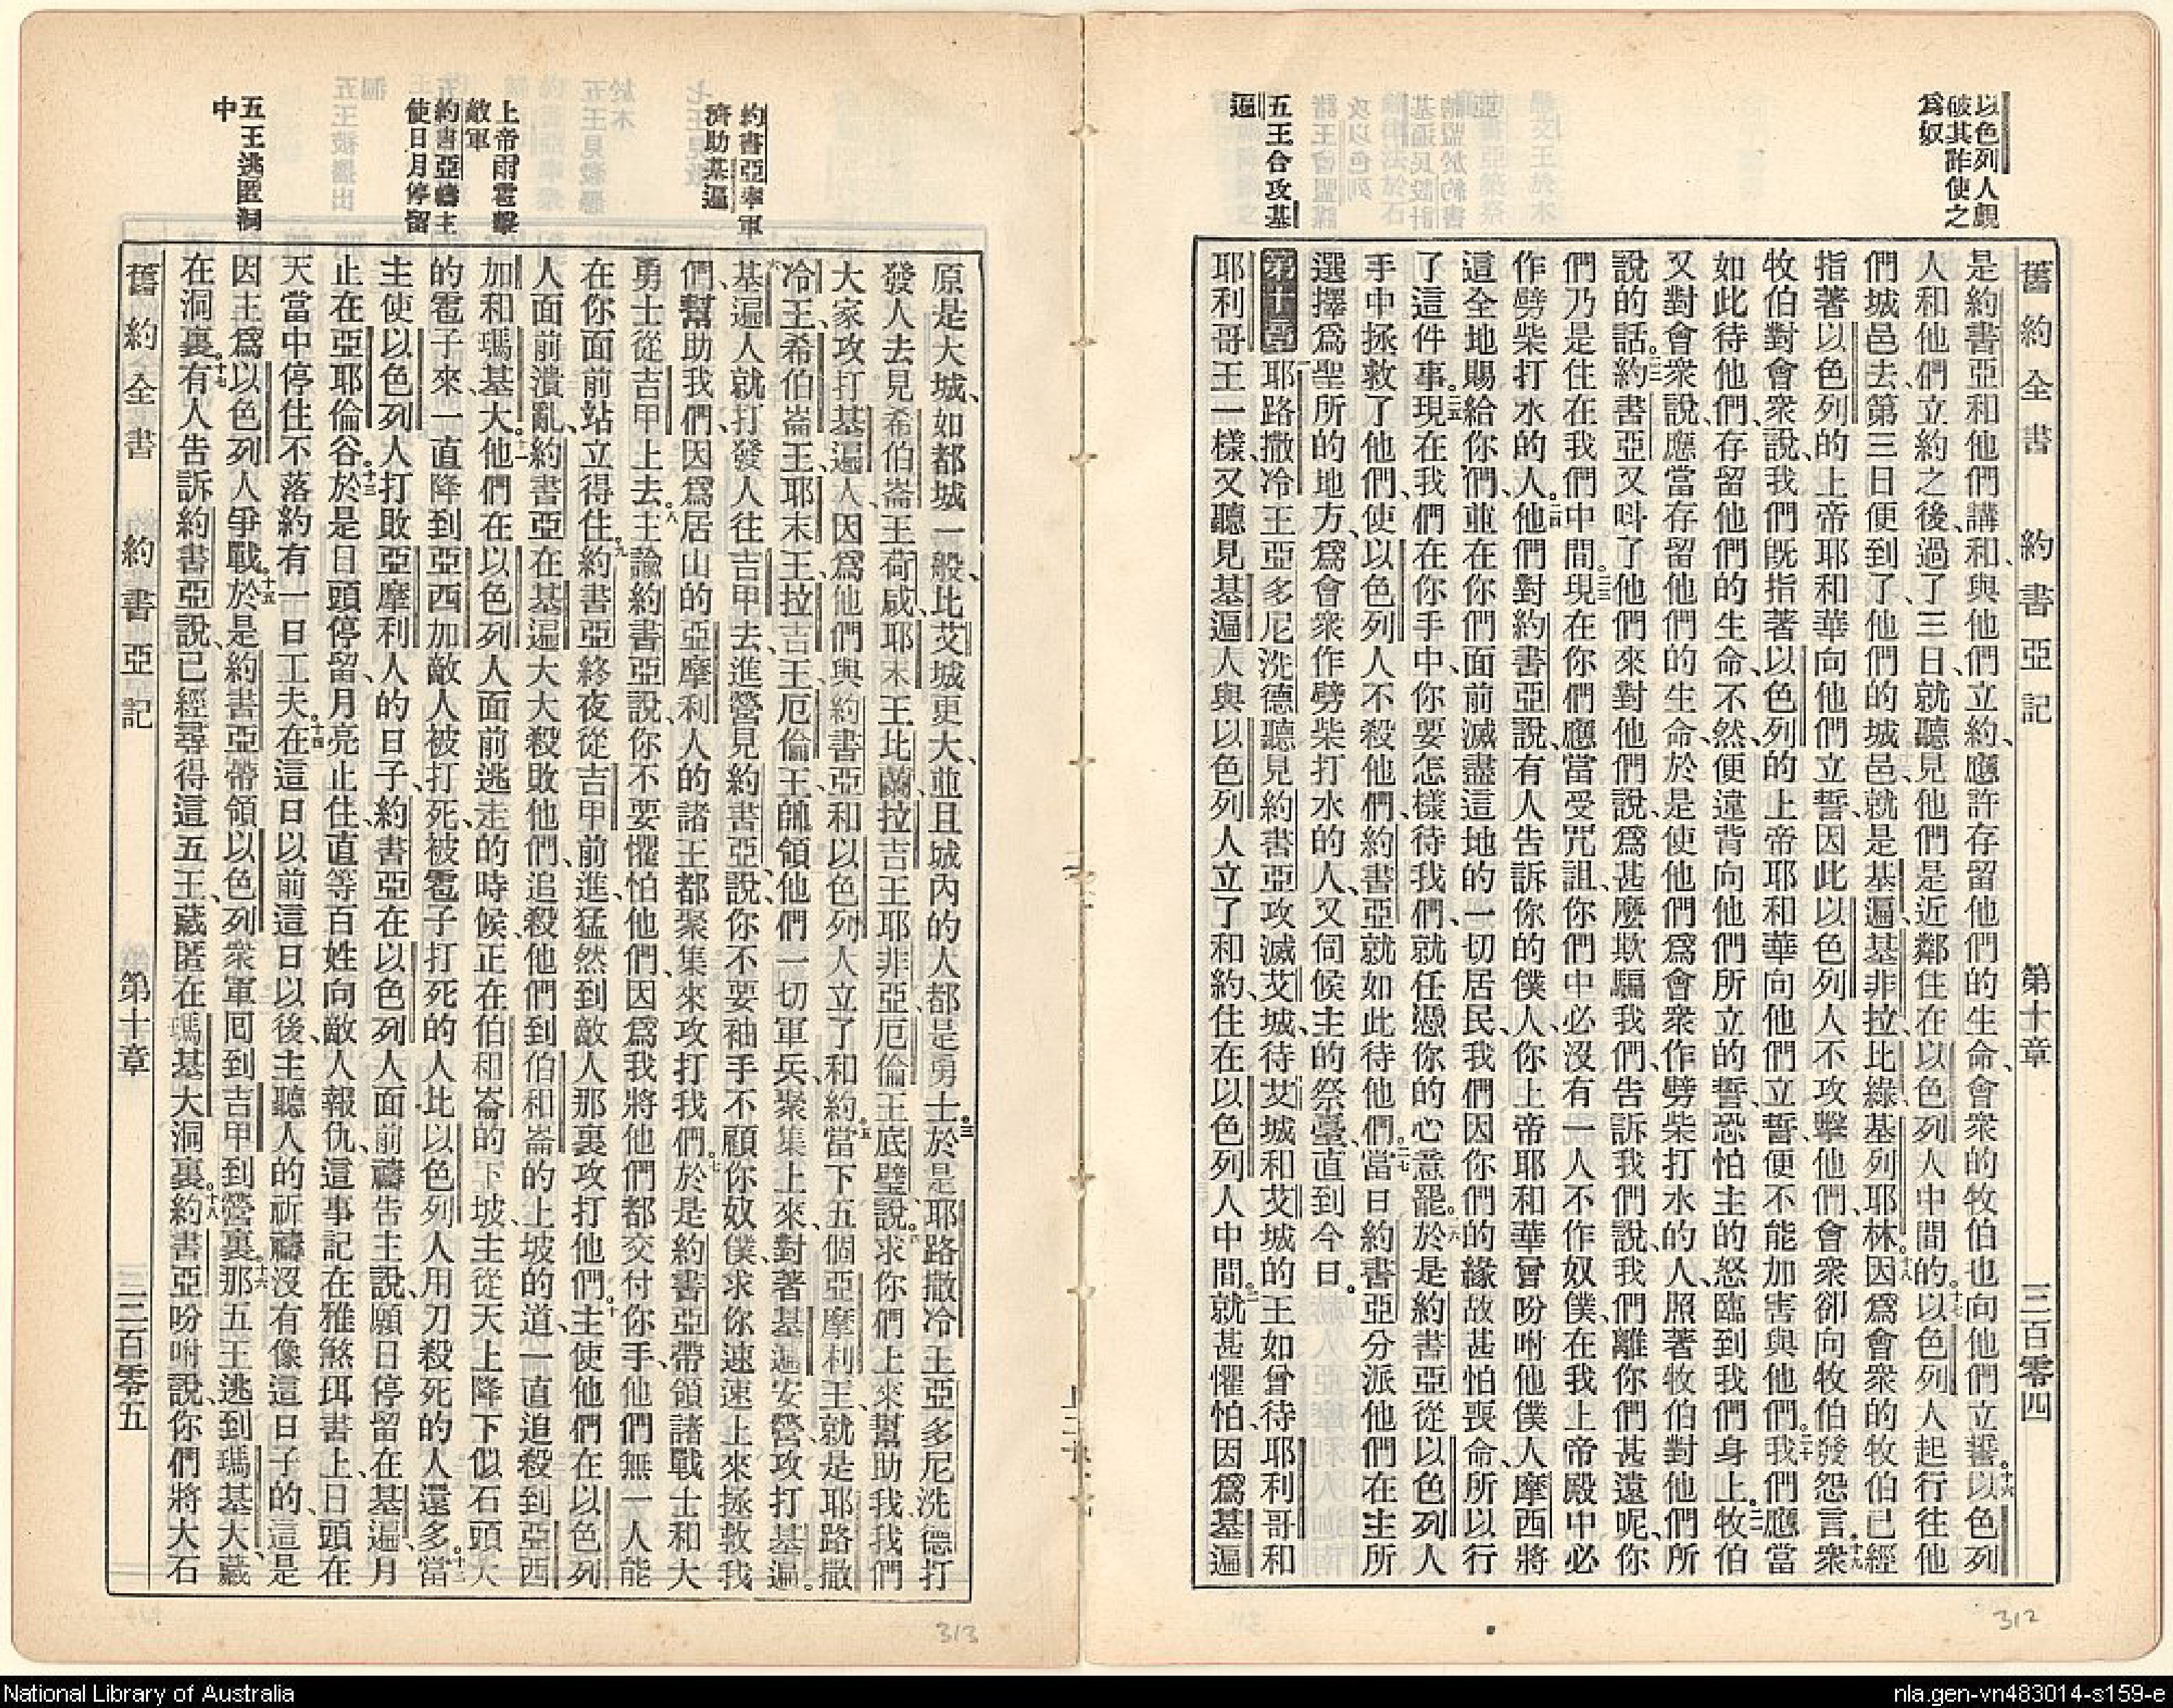 以色列人覷
破其詐使之
爲奴
五王合攻基
遍
舊約全書 約書亞記 第十章 三百零四
是約書亞和他們講和、與他們立約、應許存留他們的生命、會衆的牧伯也向他們立誓。十六以色列
人和他們立約之後、過了三日、就聽見他們是近鄰住在以色列人中間的。十七以色列人起行往他
們城邑去第三日便到了他們的城邑、就是基遍、基非拉、比綠、基列耶林。十八因爲會衆的牧伯已經
指著以色列的上帝耶和華向他們立誓因此以色列人不攻擊他們、會衆卻向牧伯發怨言。十九衆
牧伯對會衆說、我們旣指著以色列的上帝耶和華向他們立誓、便不能加害與他們。二十我們應當
如此待他們、存留他們的生命、不然、便違背向他們所立的誓、恐怕主的怒臨到我們身上。二一牧伯
又對會衆說、應當存留他們的生命、於是使他們爲會衆作劈柴打水的人、照著牧伯對他們所
說的話。二二約書亞又呌了他們來對他們說、爲甚麼欺騙我們、告訴我們說、我們離你們甚遠呢、你
們乃是住在我們中間。二三現在你們應當受咒詛、你們中必沒有一人不作奴僕、在我上帝殿中必
作劈柴打水的人。二四他們對約書亞說、有人告訴你的僕人、你上帝耶和華曾吩咐他僕人摩西將
這全地賜給你們、並在你們面前滅盡這地的一切居民、我們因你們的緣故甚怕喪命、所以行
了這件事。二五現在我們在你手中、你要怎樣待我們、就任憑你的心意罷。二六於是約書亞從以色列人
手中拯救了他們、使以色列人不殺他們、約書亞就如此待他們。二七當日約書亞分派他們在主所
選擇爲聖所的地方、爲會衆作劈柴打水的人、又伺候主的祭臺、直到今日。
第十章 一耶路撒冷王亞多尼洗德聽見約書亞攻滅艾城、待艾城和艾城的王如曾待耶利哥和
耶利哥王一樣、又聽見基遍人與以色列人立了和約、住在以色列人中間。二就甚懼怕、因爲基遍
約書亞率軍
濟助基遍
上帝雨雹擊
敵軍
約書亞禱主
使日月停留
五王逃匿洞
中
原是大城、如都城一般、比艾城更大、並且城內的人都是勇士。三於是耶路撒冷王亞多尼洗德打
發人去見希伯崙王荷咸、耶末王比蘭、拉吉王耶非亞、厄倫王底璧、說、四求你們上來幫助我、我們
大家攻打基遍人、因爲他們與約書亞和以色列人立了和約。五當下五個亞摩利王、就是耶路撒
冷王、希伯崙王、耶末王、拉吉王、厄倫王、帥領他們一切軍兵、聚集上來、對著基遍安營、攻打基遍。
六基遍人就打發人往吉甲去、進營見約書亞、說、你不要袖手不顧你奴僕、求你速速上來拯救我
們、幫助我們、因爲居山的亞摩利人的諸王都聚集來攻打我們。七於是約書亞帶領諸戰士和大
勇士從吉甲上去。八主諭約書亞說、你不要懼怕他們、因爲我將他們都交付你手、他們無一人能
在你面前站立得住。九約書亞終夜從吉甲前進、猛然到敵人那裏攻打他們。十主使他們在以色列
人面前潰亂、約書亞在基遍大大殺敗他們、追殺他們到伯和崙的上坡的道、一直追殺到亞西
加和瑪基大。十一他們在以色列人面前逃走的時候、正在伯和崙的下坡、主從天上降下似石頭大
的雹子來、一直降到亞西加敵人被打死、被雹子打死的人比以色列人用刀殺死的人還多。十二當
主使以色列人打敗亞摩利人的日子、約書亞在以色列人面前禱告主說、願日停留在基遍、月
止在亞耶倫谷。十三於是日頭停留、月亮止住、直等百姓向敵人報仇、這事記在雅煞珥書上、日頭在
天當中停住不落約有一日工夫。十四在這日以前這日以後、主聽人的祈禱沒有像這日子的、這是
因主爲以色列人爭戰。十五於是約書亞帶領以色列衆軍囘到吉甲到營裏。十六那五王逃到瑪基大、藏
在洞裏。十七有人告訴約書亞說、已經尋得這五王、藏匿在瑪基大洞裏。十八約書亞吩咐說、你們將大石
舊約全書 約書亞記 第十章 三百零五
312
313
National Library of Australia
nla.gen-vn483014-s159-e